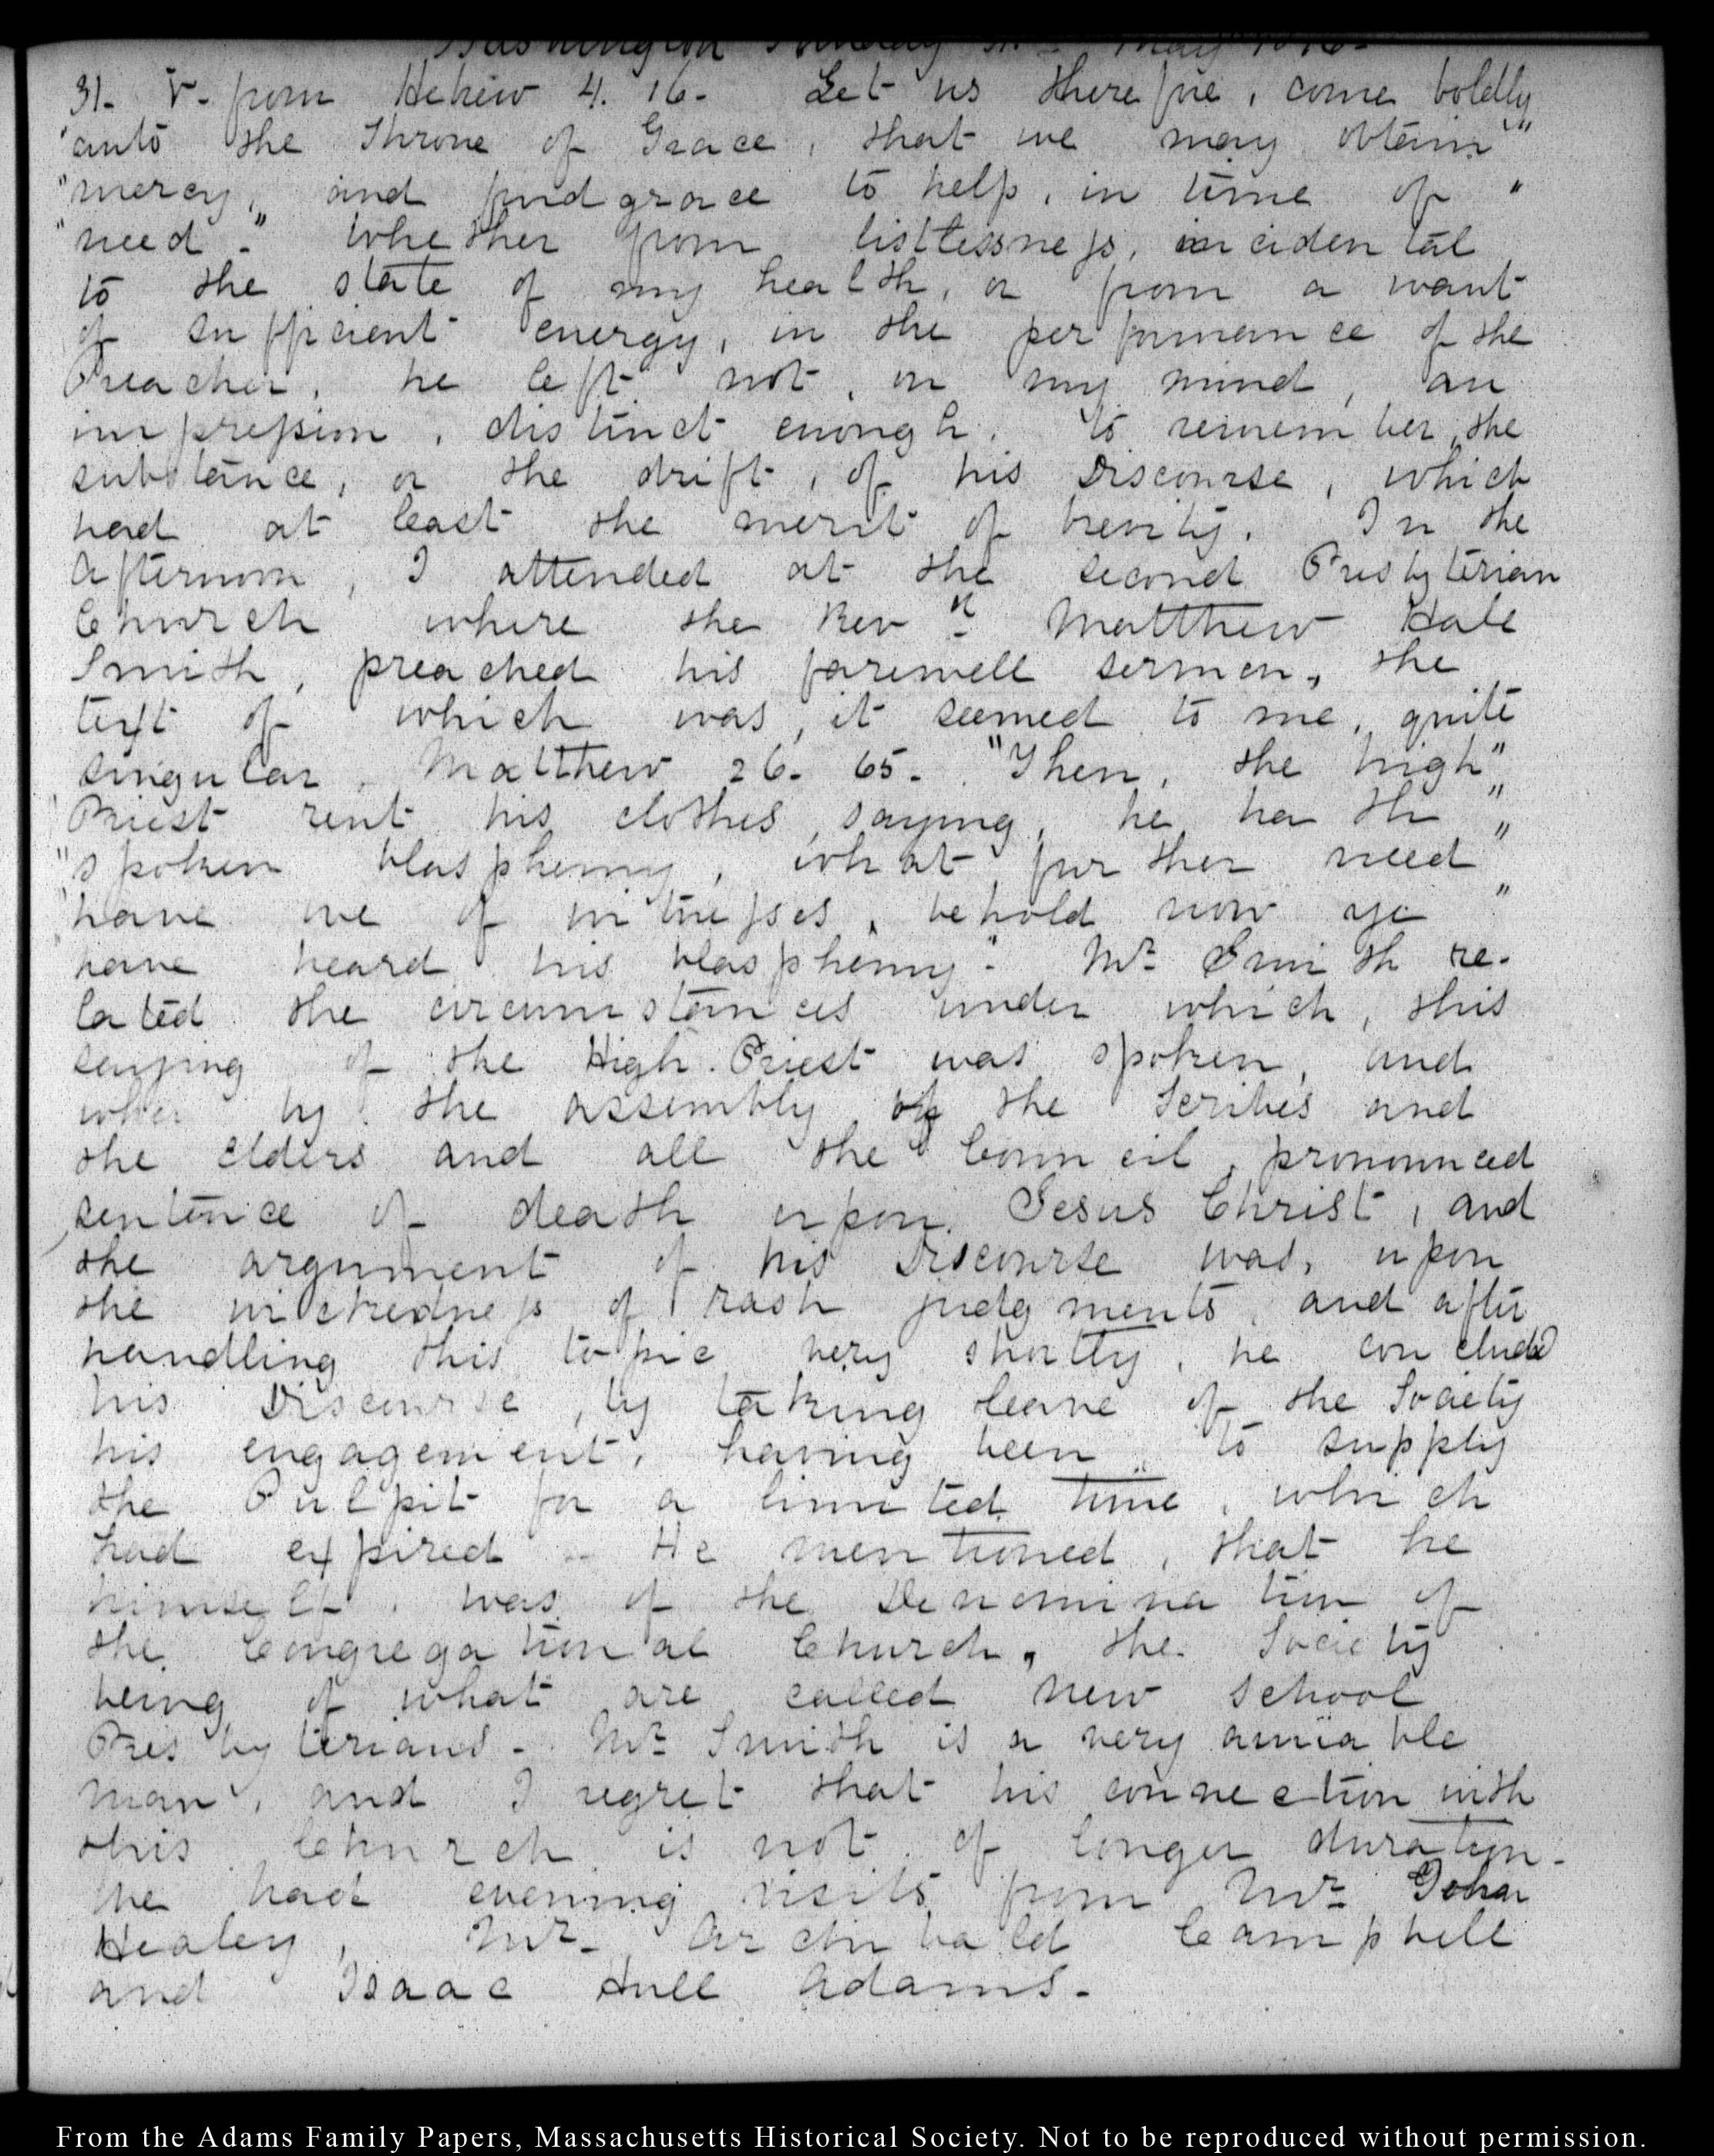 Washington Sunday 31. May 1846-
31. V. from Hebrew 4. 16. Let us therefore, come boldly
"unto the Throne of Grace, that we may obtain"
"mercy, and find grace to help, in time of "
"need." Whether from listlessness, incidental
to the state of my health, or from a want
of sufficient energy, in the performance of the
Preacher, he left not, on my mind, an
impression, distinct enough, to remember, the
substance, or the drift, of his Discourse, which
had at least the merit of brevity. In the
afternoon, I attended at the second Presbyterian
Church where the Revd. Matthew Hale
Smith, preached his farewell sermon, the
text of which was, it seemed to me, quite
singular, Matthew 26. 65. "Then, the high"
Priest rent his clothes, saying, he hath "
"spoken blasphemy, what further need"
"have we of witnesses, behold now ye "
"have heard his blasphemy". Mr. Smith re-
lated the circumstances under which, this
saying of the High Priest was spoken, and
when by the assembly of the Scribes and
the Elders and all the Council, pronounced
sentence of death upon Jesus Christ, and
the argument of his Discourse was, upon
the wickedness of rash judgments, and after
handling this topic very shortly, he concluded
his Discourse, by taking leave of the Society
his engagement, having been to supply
the Pulpit for a limited time, which
had expired - He mentioned, that he
himself, was of the Denomination of
the Congregational Church, the Society
being of what are called new school
Presbyterians - Mr. Smith is a very amiable
man, and I regret that his connection with
this Church is not of longer duration.
We had evening visits from Mr. John
Healey, Mr. Archibald Campbell
and Isaac Hull Adams.
From the Adams Family Papers, Massachusetts Historical Society. Not to be reproduced without permission.